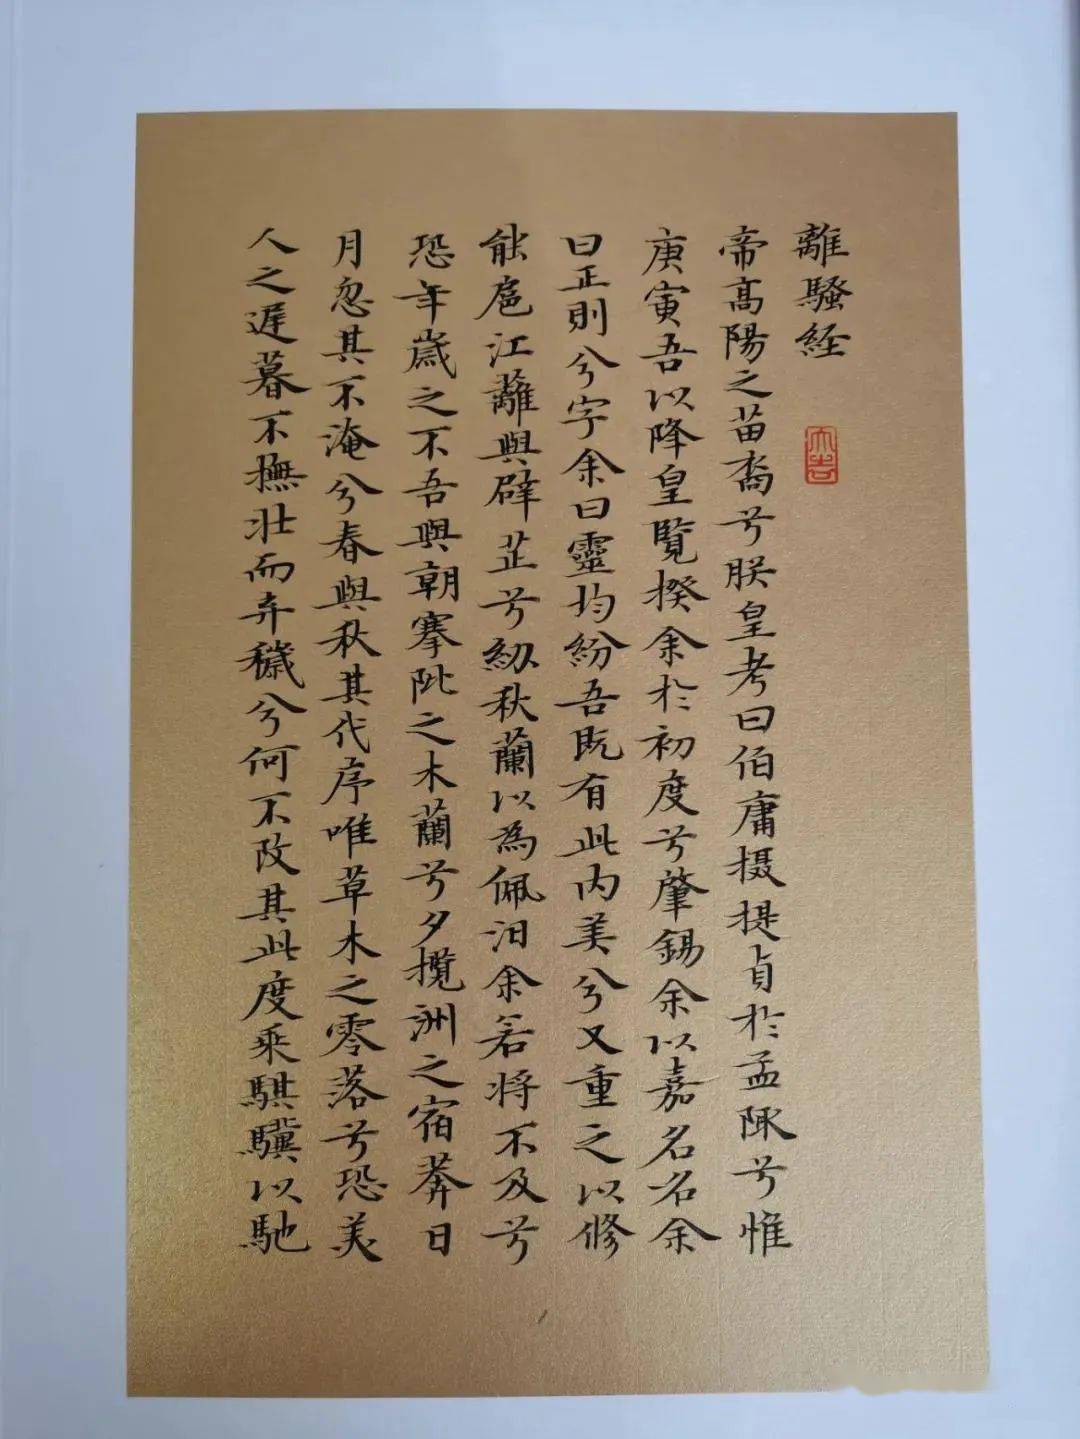 離騷経
帝高陽之苗裔兮朕皇考曰伯庸摄提貞於孟陬兮惟
庚寅吾以降皇覽揆余於初度兮肇錫余以嘉名名余
曰正則兮字余曰靈均紛吾既有此内美兮又重之以修
能扈江蘺與辟芷兮紉秋蘭以為佩汨余若將不及兮
恐年歲之不吾與朝搴阰之木蘭兮夕攬洲之宿莽日
月忽其不淹兮春與秋其代序唯草木之零落兮恐美
人之遲暮不撫壯而弃穢兮何不改其此度乘騏驥以馳